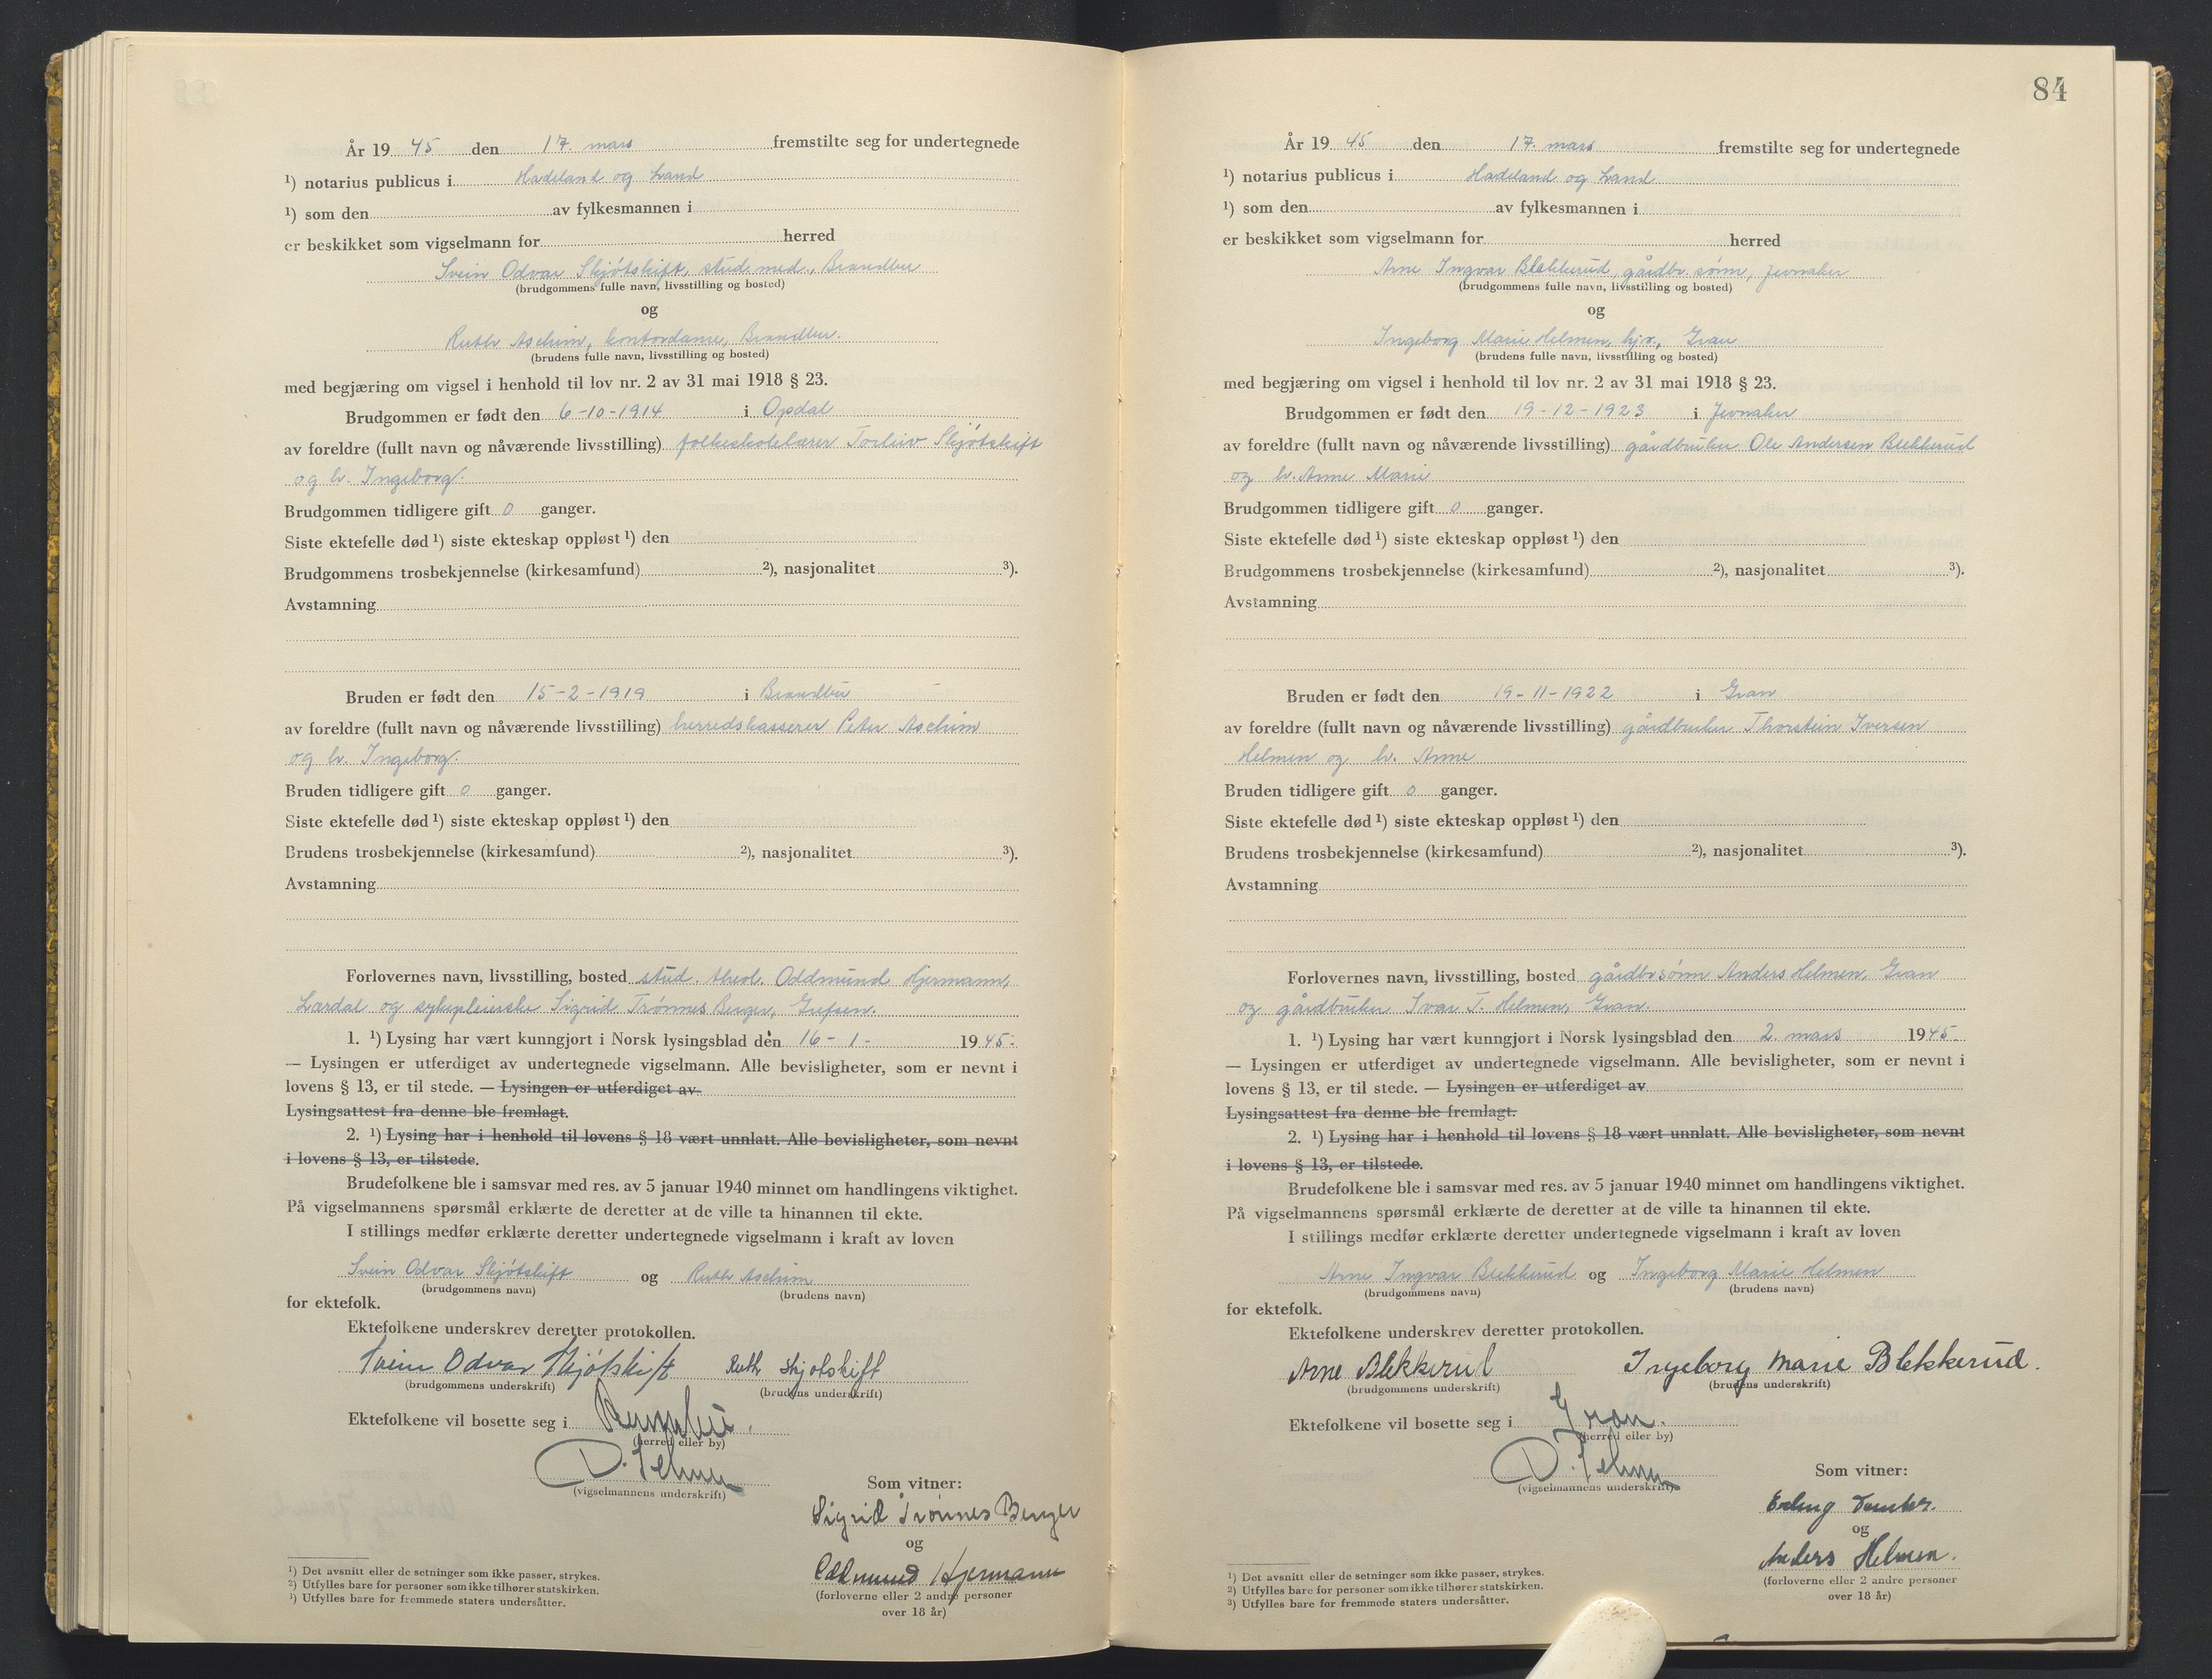 År 19 45 den 17. mars fremstilte seg for undertegnede
¹) notarius publicus i Hadeland og Land
¹) som den av fylkesmannen i
er beskikket som vigselmann for herred
Svein Odvar Skjötskift, stud. med., Brandbu
(brudgommens fulle navn, livsstilling og bosted)
og
Ruth Aschim, kontordame, Brandbu.
(brudens fulle navn, livsstilling og bosted)
med begjæring om vigsel i henhold til lov nr. 2 av 31 mai 1918 § 23.
Brudgommen er født den 6-10-1914 i Opdal
av foreldre (fullt navn og nåværende livsstilling) folkeskolelærer Torleiv Skjötskift
og h. Ingeborg.
Brudgommen tidligere gift 0 ganger.
Siste ektefelle død ¹) siste ekteskap oppløst ¹) den
Brudgommens trosbekjennelse (kirkesamfund) ²), nasjonalitet ³).
Avstamning
Bruden er født den 15-2-1919 i Brandbu
av foreldre (fullt navn og nåværende livsstilling) herredskasserer Peter Aschim
og h. Ingeborg.
Bruden tidligere gift 0 ganger.
Siste ektefelle død ¹) siste ekteskap oppløst ¹) den
Brudens trosbekjennelse (kirkesamfund) ²), nasjonalitet ³).
Avstamning
Forlovernes navn, livsstilling, bosted stud. theol. Oddmund Hjermann,
Lærdal og sykepleierske Sigrid Trönnes Berger, Grefsen.
1. ¹) Lysing har vært kunngjort i Norsk lysingsblad den 16 - 1 - 1945.
— Lysingen er utferdiget av undertegnede vigselmann. Alle bevisligheter, som er nevnt i
lovens § 13, er til stede. — Lysingen er utferdiget av
Lysingsattest fra denne ble fremlagt.
2. ¹) Lysing har i henhold til lovens § 18 vært unnlatt. Alle bevisligheter, som nevnt
i lovens § 13, er tilstede.
Brudefolkene ble i samsvar med res. av 5 januar 1940 minnet om handlingens viktighet.
På vigselmannens spørsmål erklærte de deretter at de ville ta hinannen til ekte.
I stillings medfør erklærte deretter undertegnede vigselmann i kraft av loven
Svein Odvar Skjötskift og Ruth Aschim
(brudgommens navn) (brudens navn)
for ektefolk.
Ektefolkene underskrev deretter protokollen.
Svein Odvar Skjötskift Ruth Skjotskift
(brudgommens underskrift) (brudens underskrift)
Ektefolkene vil bosette seg i
(herred eller by)
(vigselmannens underskrift)
Som vitner:
Sigrid Trönnes Berger
og
Oddmund Hjermann
(forloverne eller 2 andre personer
over 18 år)
¹) Det avsnitt eller de setninger som ikke passer, strykes.
²) Utfylles bare for personer som ikke tilhører statskirken.
³) Utfylles bare for fremmede staters undersåtter.
84
År 19 45 den 17. mars fremstilte seg for undertegnede
¹) notarius publicus i Hadeland og Land
¹) som den av fylkesmannen i
er beskikket som vigselmann for herred
Arne Ingvar Blekkerud, gårdbr. sönn, Jevnaker
(brudgommens fulle navn, livsstilling og bosted)
og
Ingeborg Marie Helmen, hjv., Gran
(brudens fulle navn, livsstilling og bosted)
med begjæring om vigsel i henhold til lov nr. 2 av 31 mai 1918 § 23.
Brudgommen er født den 19-12-1923 i Jevnaker
av foreldre (fullt navn og nåværende livsstilling) gårdbruker Ole Andersen Blekkerud
og h. Anne Marie
Brudgommen tidligere gift 0 ganger.
Siste ektefelle død ¹) siste ekteskap oppløst ¹) den
Brudgommens trosbekjennelse (kirkesamfund) ²), nasjonalitet ³).
Avstamning
Bruden er født den 19-11-1922 i Gran
av foreldre (fullt navn og nåværende livsstilling) gårdbruker Thorstein Iversen
Helmen og h. Anne
Bruden tidligere gift 0 ganger.
Siste ektefelle død ¹) siste ekteskap oppløst ¹) den
Brudens trosbekjennelse (kirkesamfund) ²), nasjonalitet ³).
Avstamning
Forlovernes navn, livsstilling, bosted gårdbr sönn Anders Helmen, Gran
og gårdbruker Ivar T. Helmen, Gran.
1. ¹) Lysing har vært kunngjort i Norsk lysingsblad den 2. mars 1945.
— Lysingen er utferdiget av undertegnede vigselmann. Alle bevisligheter, som er nevnt i
lovens § 13, er til stede. — Lysingen er utferdiget av
Lysingsattest fra denne ble fremlagt.
2. ¹) Lysing har i henhold til lovens § 18 vært unnlatt. Alle bevisligheter, som nevnt
i lovens § 13, er tilstede.
Brudefolkene ble i samsvar med res. av 5 januar 1940 minnet om handlingens viktighet.
På vigselmannens spørsmål erklærte de deretter at de ville ta hinannen til ekte.
I stillings medfør erklærte deretter undertegnede vigselmann i kraft av loven
Arne Ingvar Blekkerud og Ingeborg Marie Helmen
(brudgommens navn) (brudens navn)
for ektefolk.
Ektefolkene underskrev deretter protokollen.
Arne Blekkerud Ingeborg Marie Blekkerud.
(brudgommens underskrift) (brudens underskrift)
Ektefolkene vil bosette seg i Gran.
(herred eller by)
(vigselmannens underskrift)
Som vitner:
Erling
og
Anders Helmen.
(forloverne eller 2 andre personer
over 18 år)
¹) Det avsnitt eller de setninger som ikke passer, strykes.
²) Utfylles bare for personer som ikke tilhører statskirken.
³) Utfylles bare for fremmede staters undersåtter.